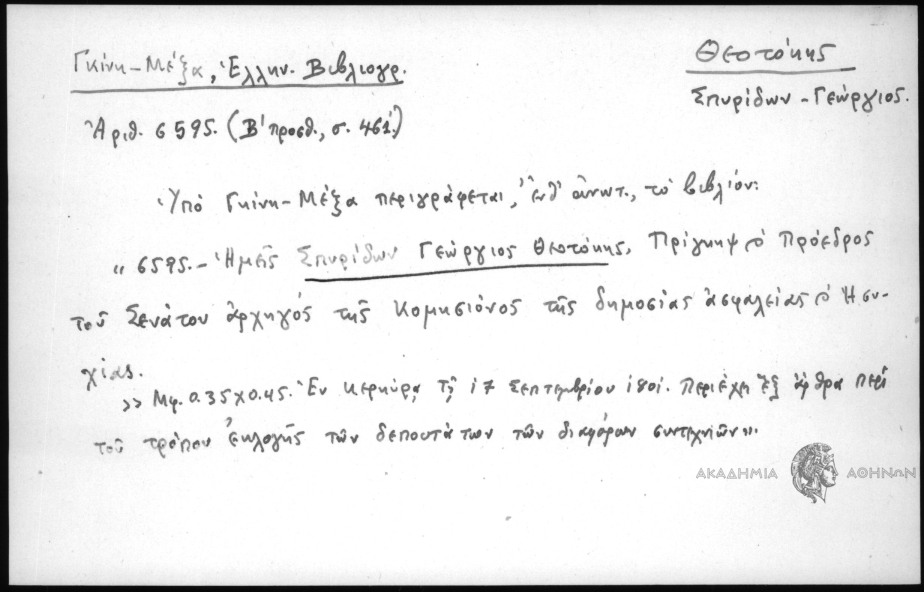 Γκίνη-Μέξα, Ἑλλην. Βιβλιογρ.
Θεοτόκης
Σπυρίδων-Γεώργιος.
Ἀριθ. 6595. (Β' προσθ., σ. 461.)
Ὑπὸ Γκίνη-Μέξα περιγράφεται, ἐνθ' ἀνωτ., τὸ βιβλίον:
"6595.- Ἡμεῖς Σπυρίδων Γεώργιος Θεοτόκης, Πρίγκηψ ὁ Πρόεδρος
τοῦ Σενάτου ἀρχηγὸς τῆς Κομησιόνος τῆς δημοσίας ἀσφαλείας ὁ Ἡσυ-
χίας.
>> Μφ. 0.35Χ0.45. Ἐν Κερκύρᾳ τῇ 17 Σεπτεμβρίου 1801. Περιέχει ἓξ ἄρθρα περὶ
τοῦ τρόπου ἐκλογῆς τῶν δεπουτάτων τῶν διαφόρων συντεχνιῶν".
ΑΚΑΔΗΜΙΑ ΑΘΗΝΩΝ